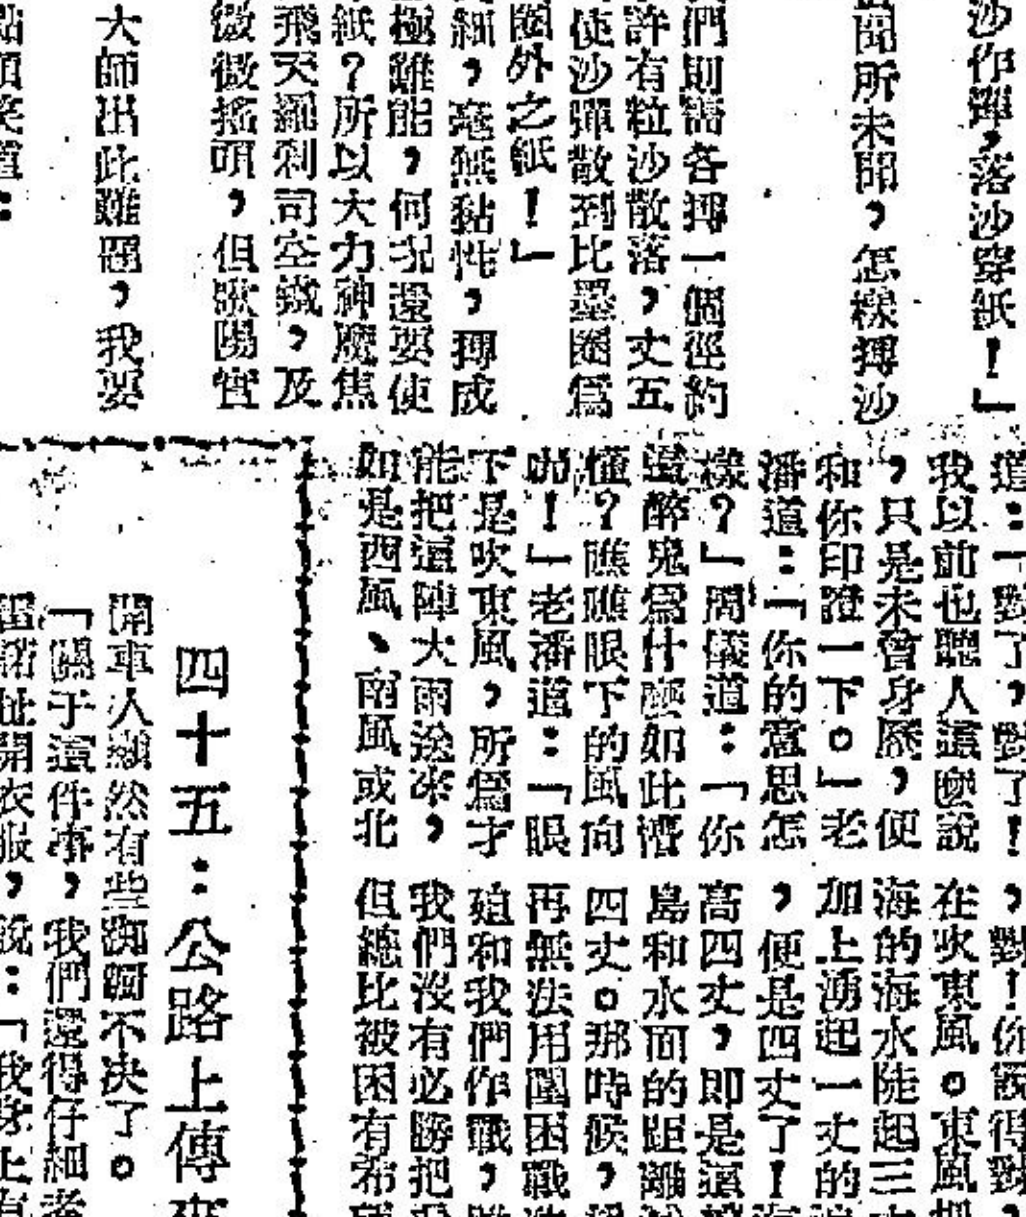 沙作彈,落沙穿紙!」
聞所未聞,怎樣摶沙
們則需各摶一個徑約
許有粒沙散落,丈五
使沙彈散到比墨圈爲
圈外之紙!」
細,毫無黏性,摶成
極難能,何況還要使
紙?所以大力神魔焦
飛天
司空
,及
微微搖頭,但歐陽
大師出此難題,我要
點頭笑道:
道:「對了,對了!
我以前也聽人這麼說
,只是未曾身歷,便
和你印證一下。」老
潘道:「你的意思怎
樣?」周儀道:「你
這醉鬼爲什麼如此懵
懂?瞧瞧眼下的風向
吧!」老潘道:「眼
下是吹東風,所爲才
能把這陣大雨送來,
如是西風、南風或北
,對!你說得對,
在吹東風。東風把
海的海水陡起三丈
加上湧起一丈的
,便是四丈了!
高四丈,即是這
島和水面的距離
四丈。那時候,
再無法用圍困戰
廹和我們作戰,
我們沒有必勝把
但總比被困有希
四十五:公路上傳來
開車人顯然有些踟躕不決了。
「關于這件事,我們還得仔細考
開衣服,說:「我身上有